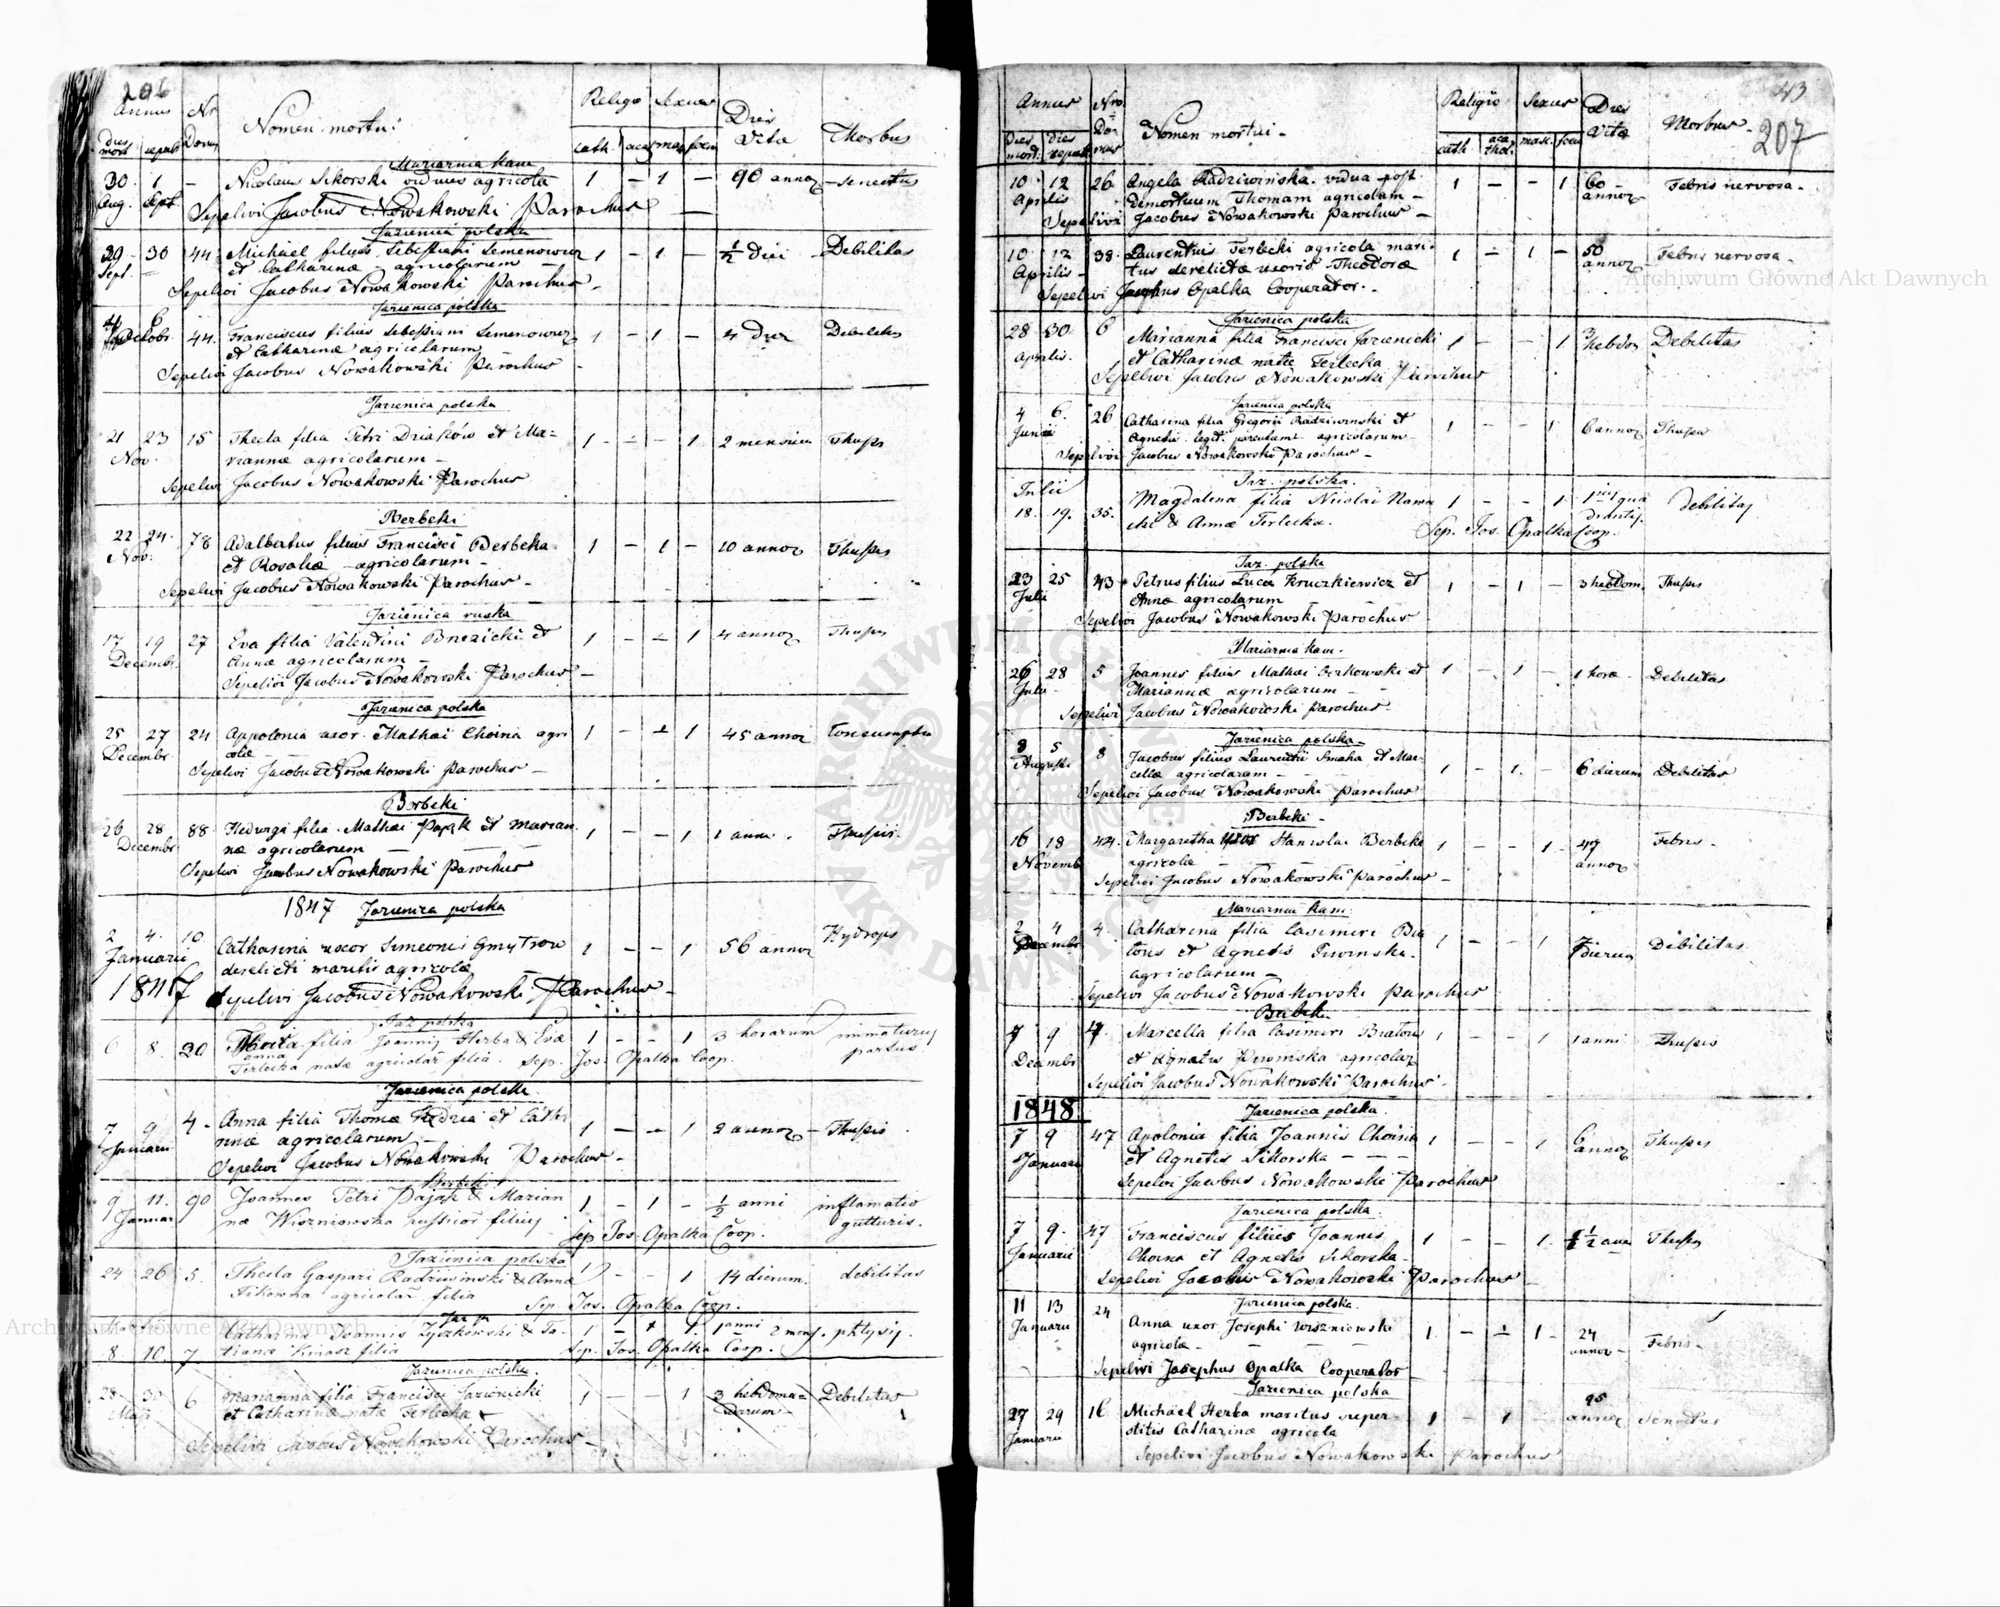 206
Annus Nr Nomen mortui Religio Sexus Dies Vitæ Morbus
dies mort. sepult. Domus cath. acat. mas. foem.
Mariarnia kam.
30 1 — Nicolaus Sikorski viduus agricola 1 — 1 — 90 annor — senectus
Aug. Sept Sepelivi Jacobus Nowakowski Parochus
Jazienica polska
29 30 44 Michael filius Sebastiani Semenowicz 1 — 1 — ½ diei Debilitas
Sept. et Catharinæ agricolarum
Sepelivi Jacobus Nowakowski Parochus
Jazienica polska
4 6 44 Franciscus filius Sebastiani Semenowicz 1 — 1 — 4 dier Debilitas
Octobr. et Catharinæ agricolarum
Sepelivi Jacobus Nowakowski Parochus
Jazienica polska
21 23 15 Thecla filia Petri Driaków et Ma- 1 - - 1 2 mensium Thussis
Nov. riannæ agricolarum
Sepelivi Jacobus Nowakowski Parochus
Berbeki
22 24 78 Adalbertus filius Francisci Berbeka 1 — 1 — 10 annor Thussis
Nov. et Rosaliæ agricolarum
Sepelivi Jacobus Nowakowski Parochus
Jazienica ruska
17 19 27 Eva filia Valentini Bnezicki et 1 — — 1 4 annor Thussis
Decembr. Annæ agricolarum
Sepelivi Jacobus Nowakowski Parochus
Jazienica polska
25 27 24 Appolonia uxor Mathæi Choina agri 1 — — 1 45 annor Consumptio
Decembr. colæ
Sepelivi Jacobus Nowakowski Parochus
Berbeki
26 28 88 Hedwigis filia Mathæi Pająk et Marian 1 — — 1 1 anni Thussis
Decembr. næ agricolarum
Sepelivi Jacobus Nowakowski Parochus
1847 Jazienica polska
2 4 10 Catharina uxor Simeonis Gmytrow 1 — — 1 56 annor Hydrops
Januarii derelicti mariti agricolæ
1847 Sepelivi Jacobus Nowakowski Parochus
Jaz polska
6 8 20 filia Joannis Herba & Eva 1 — — 1 3 horarum immaturus
Terlecka natæ agricolar filia. Sep. Jos. Opalka Coop. partus
Jazienica polska
7 9 4 Anna filia Thomæ Kędzia et Catha 1 — — 1 2 annor Thussis
Januarii rinæ agricolarum
Sepelivi Jacobus Nowakowski Parochus
Berbeki
9 11 90 Joannes Petri Pająk & Marian 1 — 1 — ½ anni inflamatio
Januar næ Wiszniowska rusticor filius Sep Jos. Opalka Coop. gutturis.
Jazienica polska
24 26 5. Thecla Gaspari Radziwinski & Anna 1 — — 1 14 dierum debilitas
Sikowna agricolar filia Sep. Jos. Opalka Coop.
Jaz p.
Catharina Joannis Zyczkowski & Ta- 1 — 1. 1 anni 2 mens. phtysis.
8. 10. 7 tianæ Kniasz filia Sep. Jos. Opalka Coop.
Jazienica polska
28 30 6 Marianna filia Francisci Jazienicki 1 — — 1 3 hebdoma- Debilitas
Maji et Catharinæ natæ Terlecka darum
Sepelivi Jacobus Nowakowski Parochus
43
207
Annus Nro Domus Nomen mortui Religio Sexus Dies Vitæ Morbus
Dies mort. dies sepult. cath. aca thol. mas. foem.
10 12 26 Angela Radziwińska vidua post 1 — — 1 60 Febris nervosa
Aprilis demortuum Thomam agricolam annor
Sepelivi Jacobus Nowakowski Parochus
10 12 38 Laurentius Terlecki agricola mari- 1 — 1 — 50 Febris nervosa
Aprilis tus derelictæ uxoris Theodoræ annor
Sepelivi Josephus Opalka Cooperator.
Jazienica polska
28 30 6 Marianna filia Francisci Jazienicki 1 — — 1 3 hebdom Debilitas
Aprilis. et Catharinæ natæ Terlecka
Sepelivi Jacobus Nowakowski Parochus
Jazienica polska
4 6. 26 Catharina filia Gregorii Radziwinski et 1 — — 1 6 annor Thussis
Junii Agnetis legit. parentum agricolarum
Sepelivi Jacobus Nowakowski Parochus
Jaz. polska.
Julii
18. 19. 35. Magdalena filia Nicolai Nawa 1 — — 1 debilitas
& Annæ Terlecka. Sep. Jos. Opalka Coop.
Jaz. polska
23 25 43 Petrus filius Lucæ Kruczkiewicz et 1 — 1 — 3 hebdom. Thussis
Julii Annæ agricolarum
Sepelivi Jacobus Nowakowski Parochus
Mariarnia kam.
26 28 5 Joannes filius Mathæi et 1 — 1 — 1 horæ Debilitas
Julii Mariannæ agricolarum
Sepelivi Jacobus Nowakowski Parochus
Jazienica polska
3 5 8 Jacobus filius Laurentii Smaha et Mar- 1 — 1 — 6 dierum Debilitas
Augusti cellæ agricolarum
Sepelivi Jacobus Nowakowski Parochus
Berbeki
16 18 44. Margaretha uxor Stanislai Berbeka 1 — — 1 47 Febris
Novemb agricolæ annor
Sepelivi Jacobus Nowakowski Parochus
Mariarnia kam.
2 4 4. Catharina filia Casimiri Bra 1 — — 1 7 dierum Debilitas
Decembr tons et Agnetis Piwinska
agricolarum
Sepelivi Jacobus Nowakowski Parochus
Berbek.
7 9 4. Marcella filia Casimiri Bratons 1 — — 1 1 anni Thussis
Decembr et Agnetis Piwinska agricolar
Sepelivi Jacobus Nowakowski Parochus
1848 Jazienica polska
7 9 47 Apolonia filia Joannis Choina 1 — — 1 6 annor Thussis
Januarii et Agnetis Sikorska
Sepelivi Jacobus Nowakowski Parochus
Jazienica polska
7 9. 47 Franciscus filius Joannis 1 — — 1 1½ anni Thussis
Januarii Choina et Agnetis Sikorska
Sepelivi Jacobus Nowakowski Parochus
Jazienica polska
11 13 24 Anna uxor Josephi Wiszniowski 1 — — 1 24 annor Febris
Januarii agricolæ
Sepelivi Josephus Opalka Cooperator
Jazienica polska
27 29 16 Michael Herba maritus super 1 — 1 — 95 annor Senectus
Januarii stitis Catharinæ agricola
Sepelivi Jacobus Nowakowski Parochus
Archiwum Główne Akt Dawnych
Archiwum Główne Akt Dawnych
ARCHIWUM GŁÓWNE AKT DAWNYCH